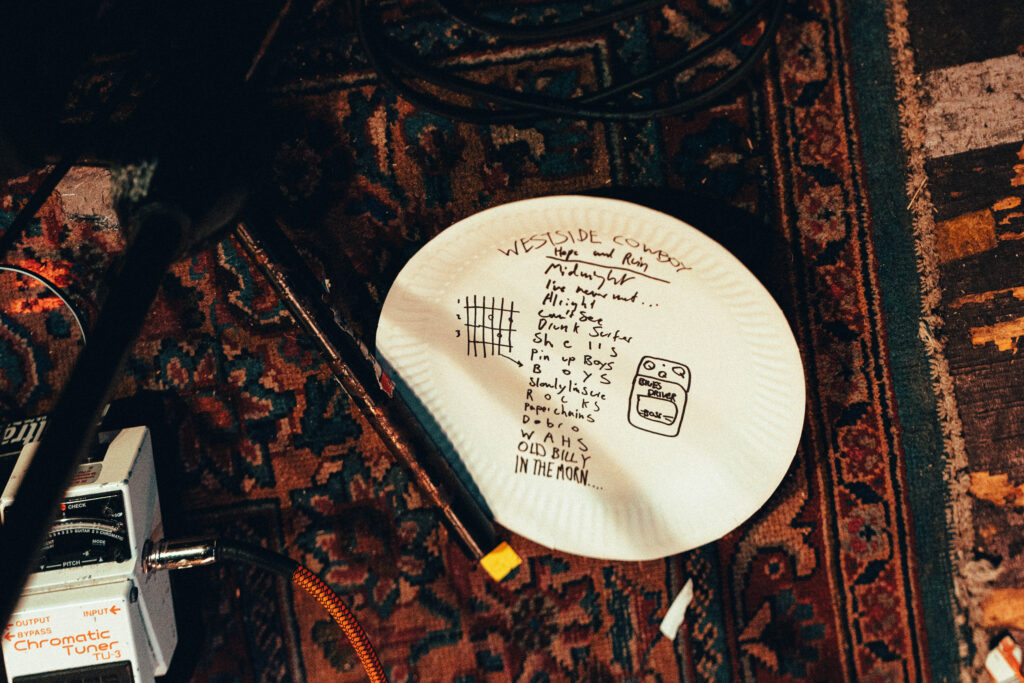 WESTSIDE COWBOY
Hope and Ruin
Midnight
I've never met...
Alright
Can't See
Drunk Surfer
Shells
Pin up Boys
BOYS
Slowly I'm Sure
ROCKS
Paperchains
Dobro
WAHS
OLD BILLY
IN THE MORN....
1
2
3
BLUES
DRIVER
BOSS
CHECK
GUITAR
CHROMATIC
MODE
PITCH
OUTPUT
INPUT
BYPASS
Chromatic
Tuner
TU-3